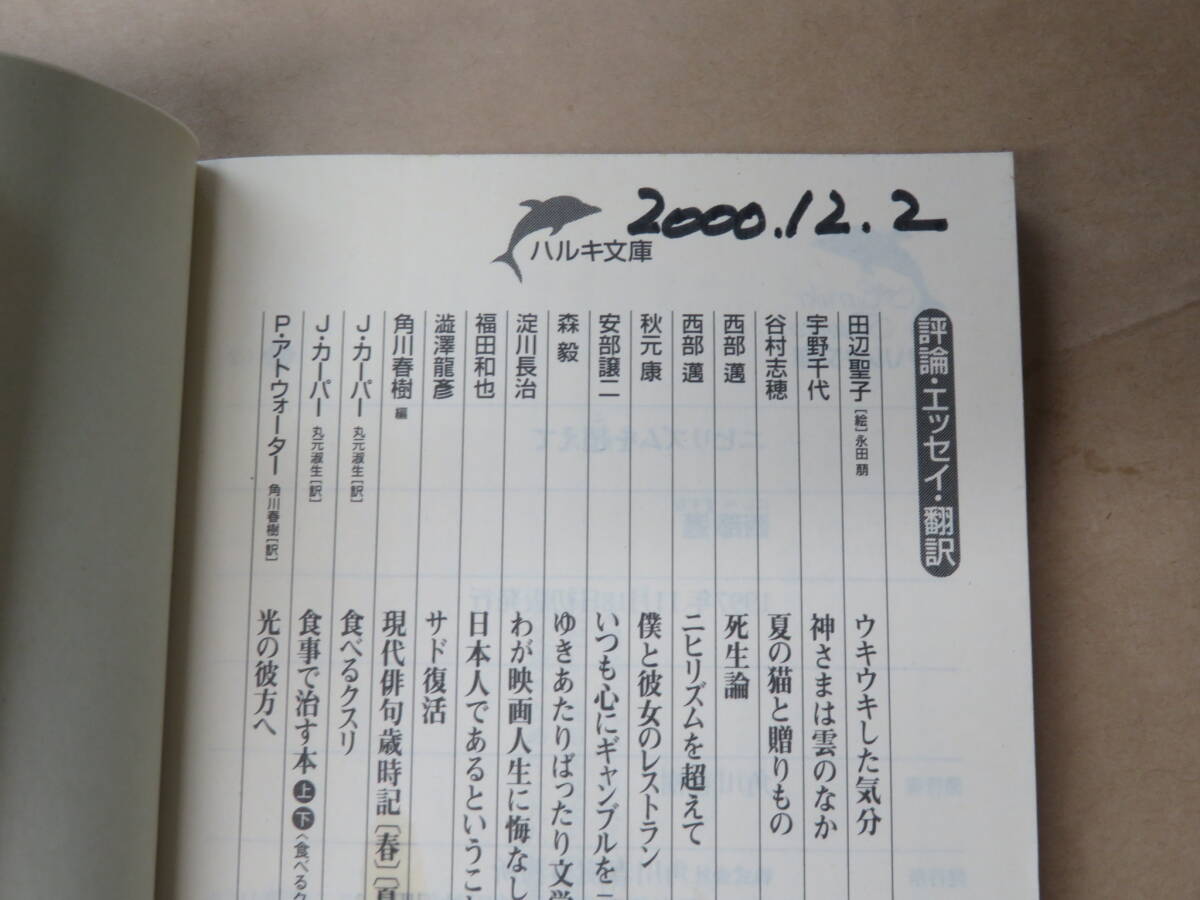 2000.12.2
ハルキ文庫
評論・エッセイ・翻訳
田辺聖子 [絵]永田 萠 ウキウキした気分
宇野千代 神さまは雲のなか
谷村志穂 夏の猫と贈りもの
西部 邁 死生論
西部 邁 ニヒリズムを超えて
秋元 康 僕と彼女のレストラン
安部譲二 いつも心にギャンブルを
森 毅 ゆきあたりばったり文学
淀川長治 わが映画人生に悔なし
福田和也 日本人であるというこ
澁澤龍彥 サド復活
角川春樹 編 現代俳句歳時記〔春〕〔夏
J・カーパー 丸元淑生[訳] 食べるクスリ
J・カーパー 丸元淑生[訳] 食事で治す本 上 下〈食べるク
P・アトウォーター 角川春樹[訳] 光の彼方へ